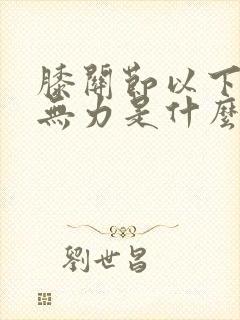 膝關節以下
無力是什麼
劉世昌